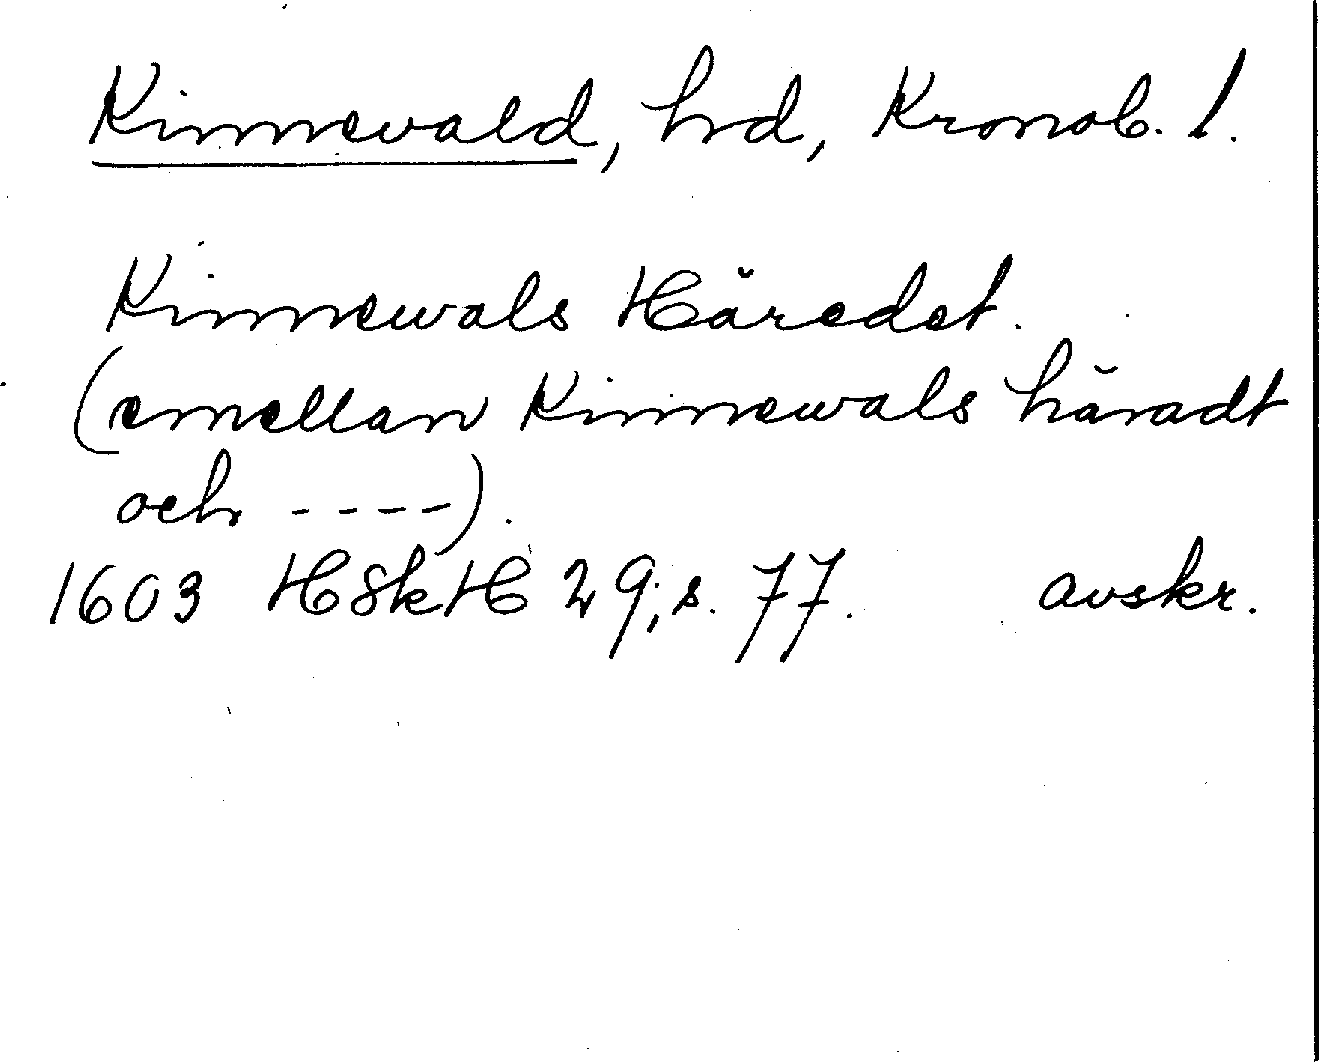 Kinnevald, hrd, Kronob. l.
Kinnewals Häredet.
(emellan Kinnewals häradt
och ----).
1603 HSkH 29; s. 77. avskr.